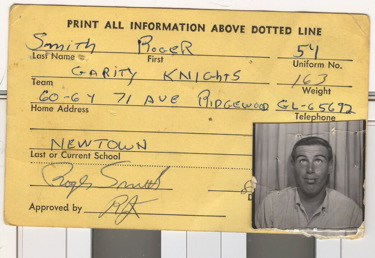 PRINT ALL INFORMATION ABOVE DOTTED LINE
Smith Roger 54
Last Name First Uniform No.
GARITY KNIGHTS 163
Team Weight
60-64 71 AVE RIDGEWOOD GL-65692
Home Address Telephone
NEWTOWN
Last or Current School
Roger Smith
Approved by